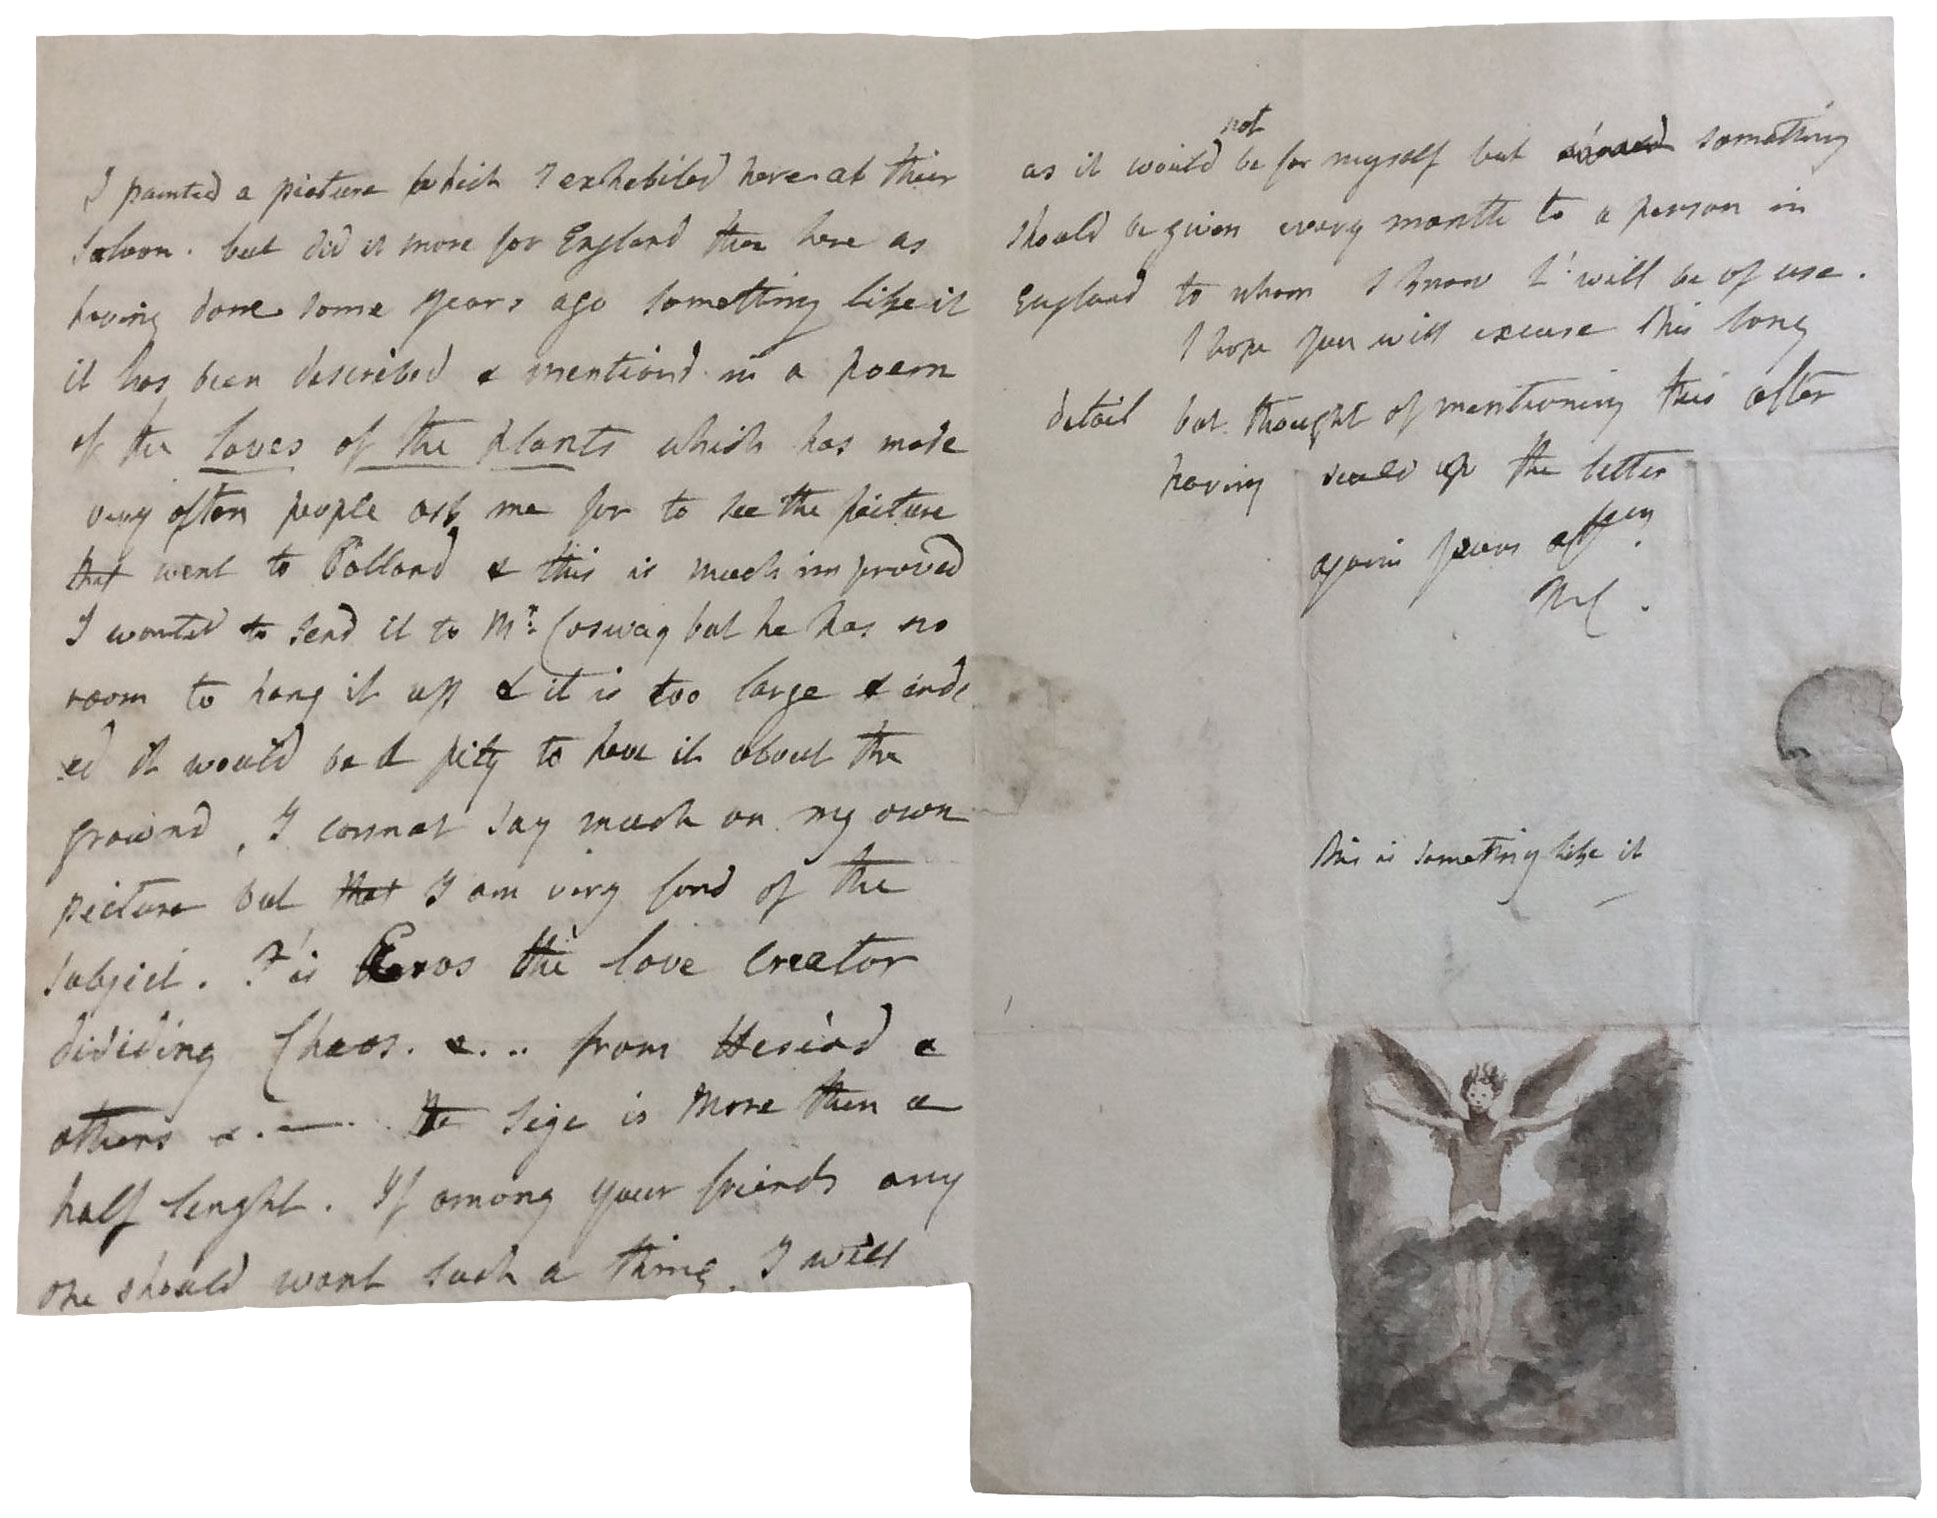 I painted a picture which I exhebited here at thier
Saloon. but did it more for England then here as
having done some years ago something like it
it has been described & mention'd in a poem
of the Loves of the plants which has made
very often people ask me for to see the picture
that went to Polland & this is much improved
I wanted to send it to Mr. Cosway but he has no
room to hang it up & it is too large & inde
ed it would be a pity to have it about the
ground, I connat say much on my own
picture but that I am very fond of the
subject. T'is Eros the love creator
dididing Chaos. &... from Hesiod &
others &. — The size is more then a
half lenght. If among your friends any
one should want such a thing, I will
as it would not be for myself but something
should be given every month to a person in
England to whom I know t' will be of use.
I hope you will excuse this long
detail but thought of mentioning this after
having seald up the letter
again yours affly.
MC.
this is something like it